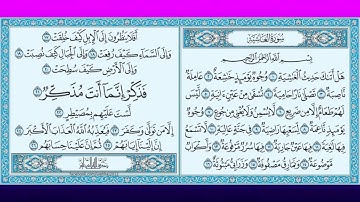 سُورَةُ الغَاشِيَةِ
بِسْمِ اللَّهِ الرَّحْمَٰنِ الرَّحِيمِ
هَلْ أَتَىٰكَ حَدِيثُ ٱلْغَٰشِيَةِ ١ وُجُوهٌ يَوْمَئِذٍ خَٰشِعَةٌ ٢
عَامِلَةٌ نَّاصِبَةٌ ٣ تَصْلَىٰ نَارًا حَامِيَةً ٤ تُسْقَىٰ مِنْ عَيْنٍ ءَانِيَةٍ ٥ لَّيْسَ
لَهُمْ طَعَامٌ إِلَّا مِن ضَرِيعٍ ٦ لَّا يُسْمِنُ وَلَا يُغْنِي مِن جُوعٍ ٧ وُجُوهٌ
يَوْمَئِذٍ نَّاعِمَةٌ ٨ لِّسَعْيِهَا رَاضِيَةٌ ٩ فِي جَنَّةٍ عَالِيَةٍ ١٠ لَّا تَسْمَعُ
فِيهَا لَٰغِيَةً ١١ فِيهَا عَيْنٌ جَارِيَةٌ ١٢ فِيهَا سُرُرٌ مَّرْفُوعَةٌ ١٣ وَأَكْوَابٌ
مَّوْضُوعَةٌ ١٤ وَنَمَارِقُ مَصْفُوفَةٌ ١٥ وَزَرَابِيُّ مَبْثُوثَةٌ ١٦
أَفَلَا يَنظُرُونَ إِلَى ٱلْإِبِلِ كَيْفَ خُلِقَتْ ١٧
وَإِلَى ٱلسَّمَآءِ كَيْفَ رُفِعَتْ ١٨ وَإِلَى ٱلْجِبَالِ كَيْفَ نُصِبَتْ ١٩
وَإِلَى ٱلْأَرْضِ كَيْفَ سُطِحَتْ ٢٠
فَذَكِّرْ إِنَّمَآ أَنتَ مُذَكِّرٌ ٢١
لَّسْتَ عَلَيْهِم بِمُصَيْطِرٍ ٢٢
إِلَّا مَن تَوَلَّىٰ وَكَفَرَ ٢٣ فَيُعَذِّبُهُ ٱللَّهُ ٱلْعَذَابَ ٱلْأَكْبَرَ ٢٤
إِنَّ إِلَيْنَآ إِيَابَهُمْ ٢٥ ثُمَّ إِنَّ عَلَيْنَا حِسَابَهُم ٢٦